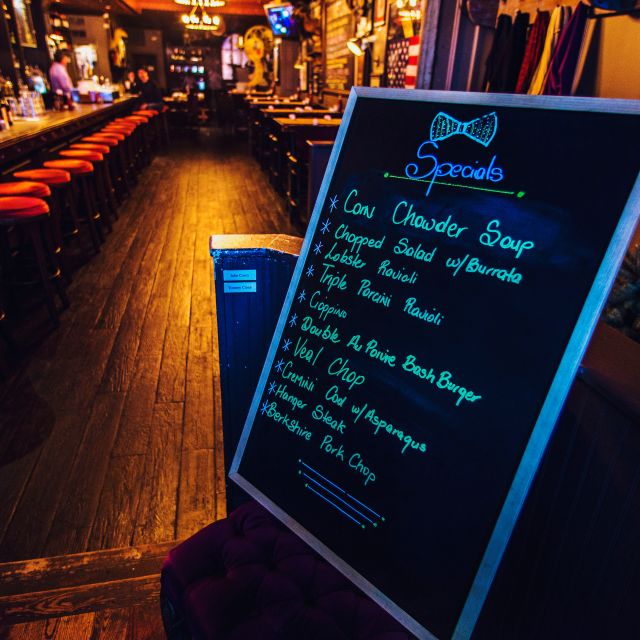 Specials
* Corn Chowder Soup
* Chopped Salad w/ Burrata
* Lobster Ravioli
* Triple Porcini Ravioli
* Cippino
* Double Au Poivre Bash Burger
* Veal Chop
* Gemini Cod w/ Asparagus
* Hanger Steak
* Berkshire Pork Chop